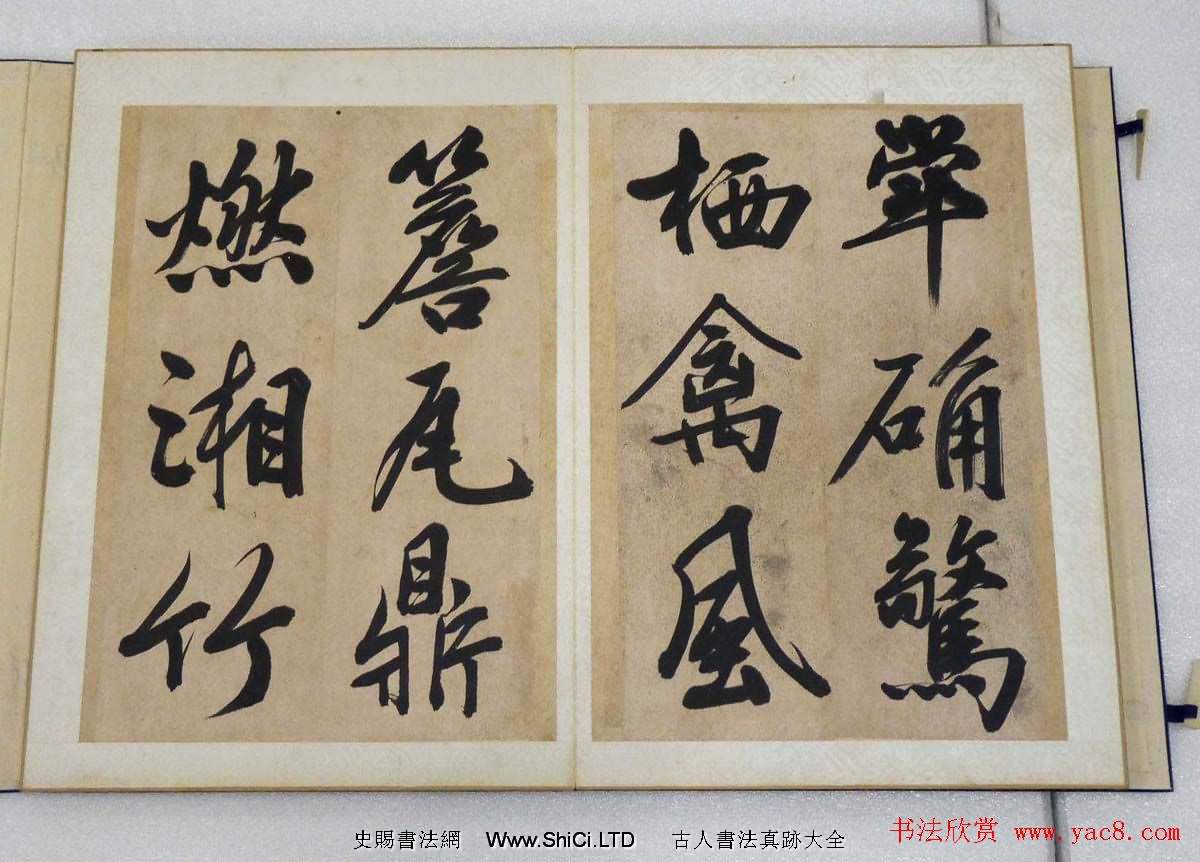 犖确驚
栖禽風
簷瓦鼎
燃湘竹
史賜書法網 Www.ShiCi.LTD 古人書法真跡大全
书法欣赏 www.yac8.com